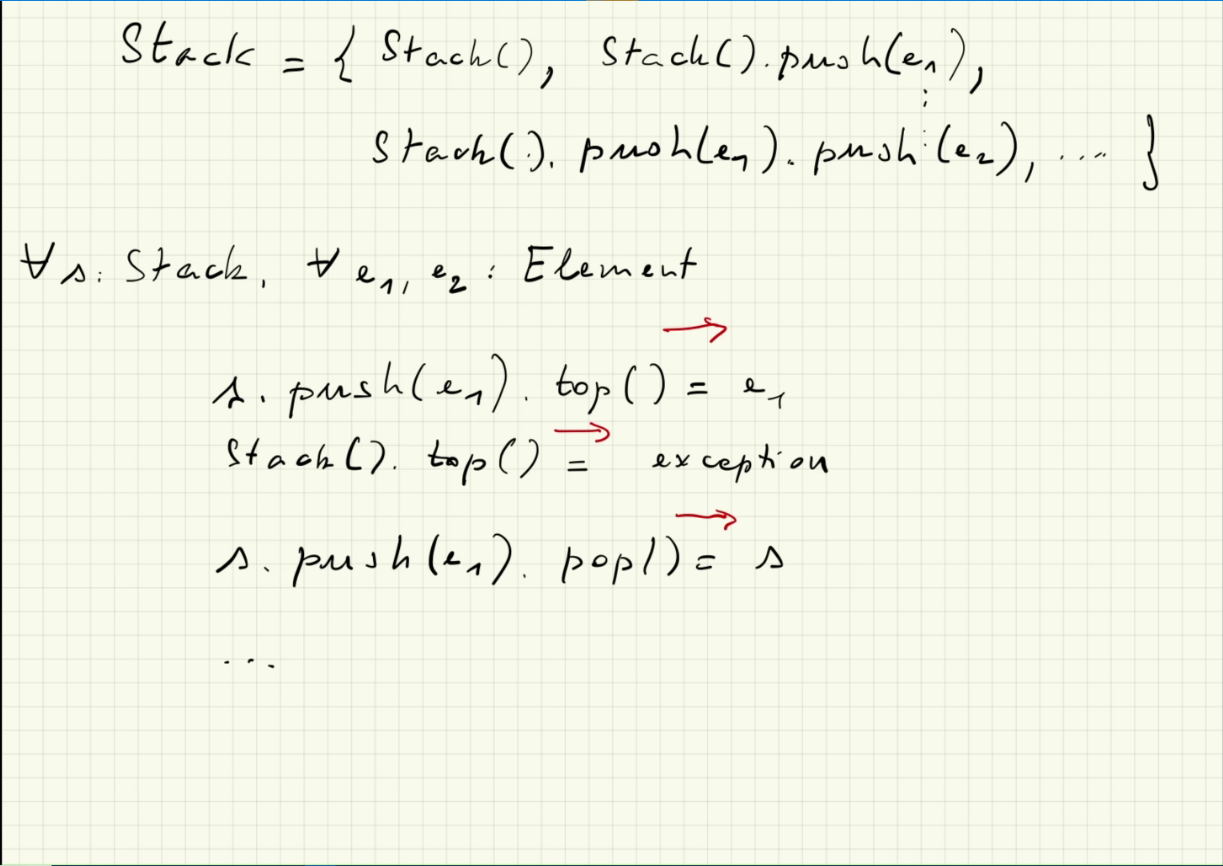 Stack = { Stack(), Stack().push(e₁),
Stack().push(e₁).push(e₂), ... }
∀ s: Stack, ∀ e₁, e₂ : Element
s.push(e₁).top() = e₁
Stack().top() = exception
s.push(e₁).pop() = s
...